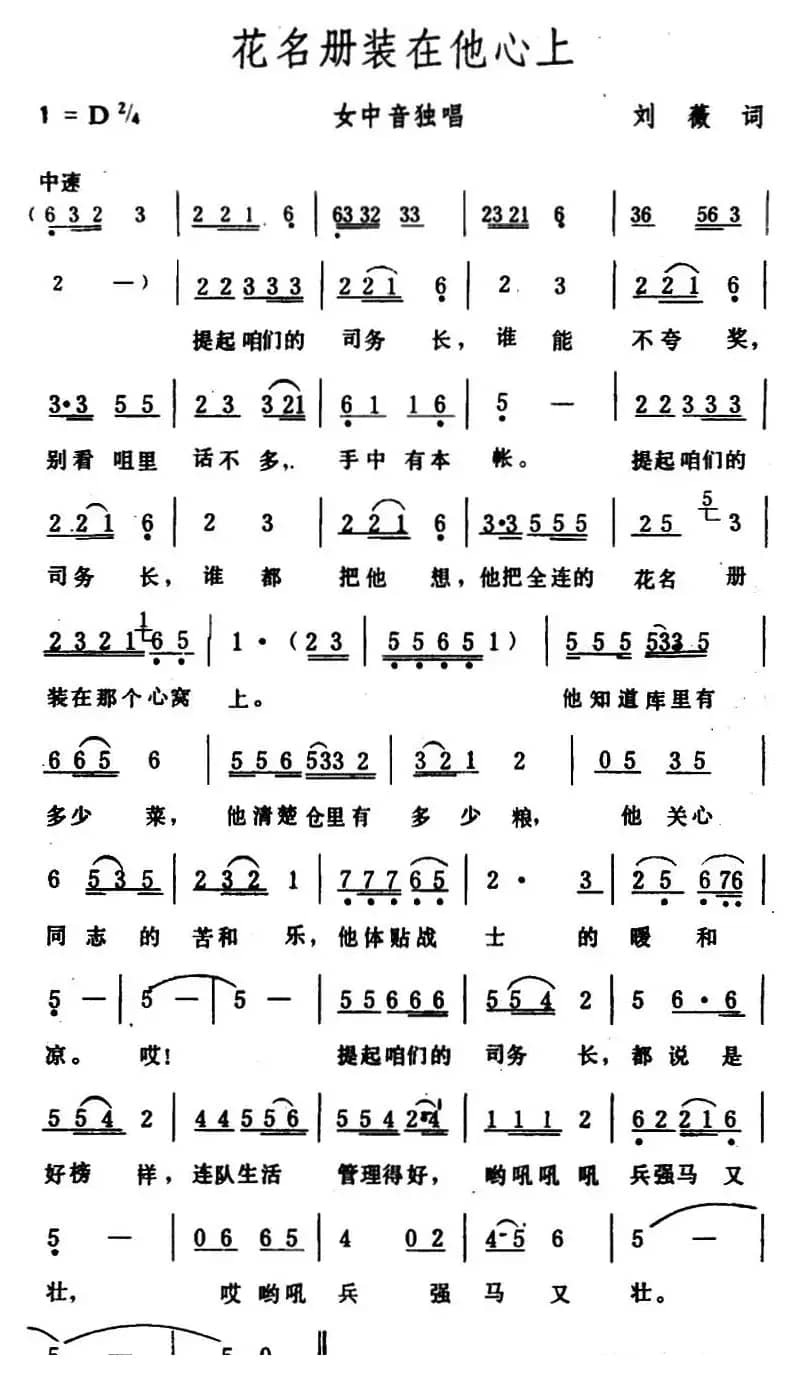 花名册装在他心上
1 = D 2/4 女中音独唱 刘薇 词
中速
(6 3 2 3 | 2 2 1 6 | 63 32 33 | 23 21 6 | 36 56 3 |
2 —) | 2 2 3 3 3 | 2 2 1 6 | 2 3 | 2 2 1 6 |
提起咱们的 司务 长，谁 能 不 夸 奖，
3·3 5 5 | 2 3 3 21 | 6 1 1 6 | 5 — | 2 2 3 3 3 |
别看 咀里 话不 多， 手中 有本 帐。 提起咱们的
2 2 1 6 | 2 3 | 2 2 1 6 | 3·3 5 5 5 | 2 5 5 3 |
司务 长，谁 都 把他 想，他把全连的 花名 册
2 3 2 1 1 6 5 | 1 · (2 3 | 5 5 6 5 1) | 5 5 5 533 5 |
装在那个心窝 上。 他知道库里有
6 6 5 6 | 5 5 6 533 2 | 3 2 1 2 | 0 5 3 5 |
多少 菜，他清楚仓里有 多少粮， 他 关心
6 5 3 5 | 2 3 2 1 | 7 7 7 6 5 | 2 · 3 | 2 5 6 76 |
同志 的 苦和 乐，他体贴战 士 的 暖 和
5 — | 5 — | 5 — | 5 5 6 6 6 | 5 5 4 2 | 5 6·6 |
凉。 哎！ 提起咱们的 司务 长，都 说 是
5 5 4 2 | 4 4 5 5 6 | 5 5 4 2 4 | 1 1 1 2 | 6 2 2 1 6 |
好榜 样，连队生活 管理得好， 哟吼吼吼 兵强马 又
5 — | 0 6 6 5 | 4 0 2 | 4·5 6 | 5 — |
壮， 哎哟吼 兵 强 马 又 壮。
5 — | 5 0 ‖